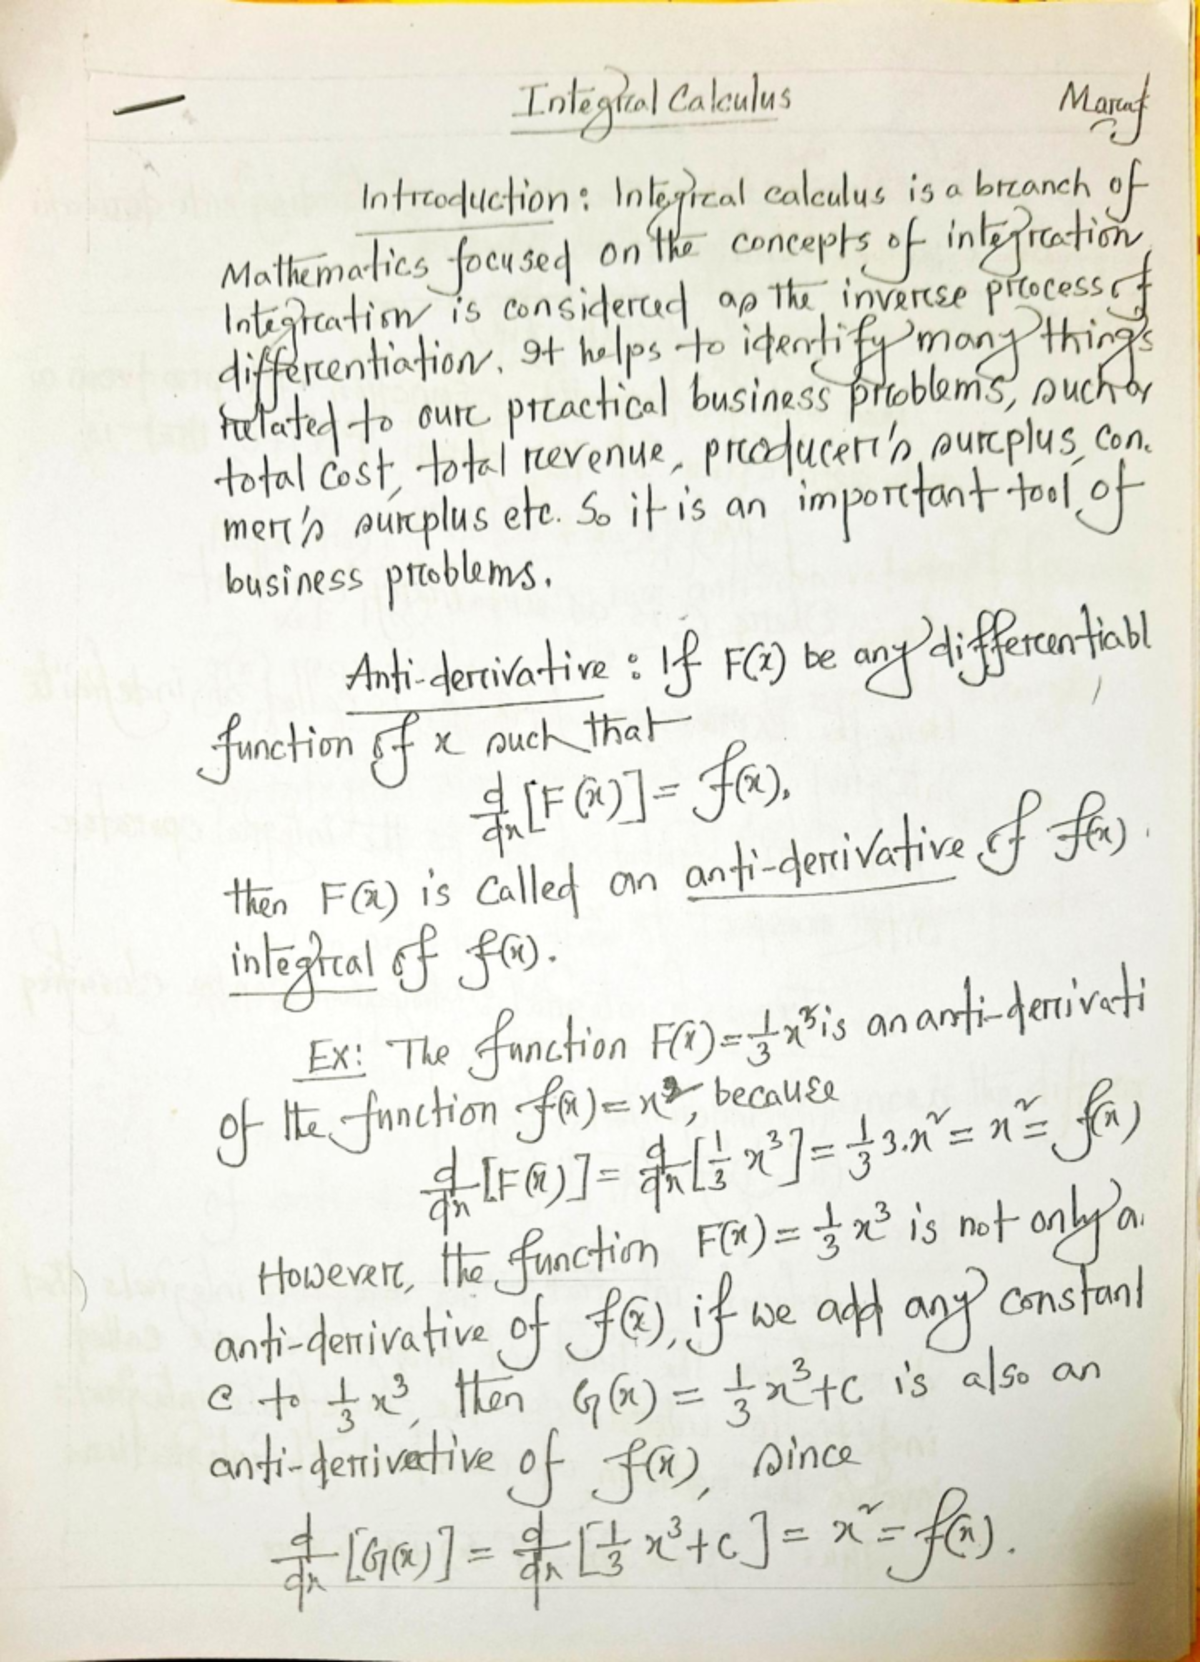 Integral Calculus
Maruf
Introduction: Integral calculus is a branch of
Mathematics focused on the concepts of integration
Integration is considered as the inverse process of
differentiation. It helps to identify many things
related to our practical business problems, such as
total cost, total revenue, producer's surplus, con.
mer's surplus etc. So it is an important tool of
business problems.
Anti-derivative : If F(x) be any differentiabl
function of x such that
d/dx [F(x)] = f(x).
then F(x) is called an anti-derivative of f(x).
integral of f(x).
Ex: The function F(x) = 1/3 x³ is an anti-derivati
of the function f(x) = x², because
d/dx [F(x)] = d/dx [1/3 x³] = 1/3 3.x² = x² = f(x)
However, the function F(x) = 1/3 x³ is not only a
anti-derivative of f(x), if we add any constant
c to 1/3 x³, then G(x) = 1/3 x³+c is also an
anti-derivative of f(x), since
d/dx [G(x)] = d/dx [1/3 x³+c] = x² = f(x).